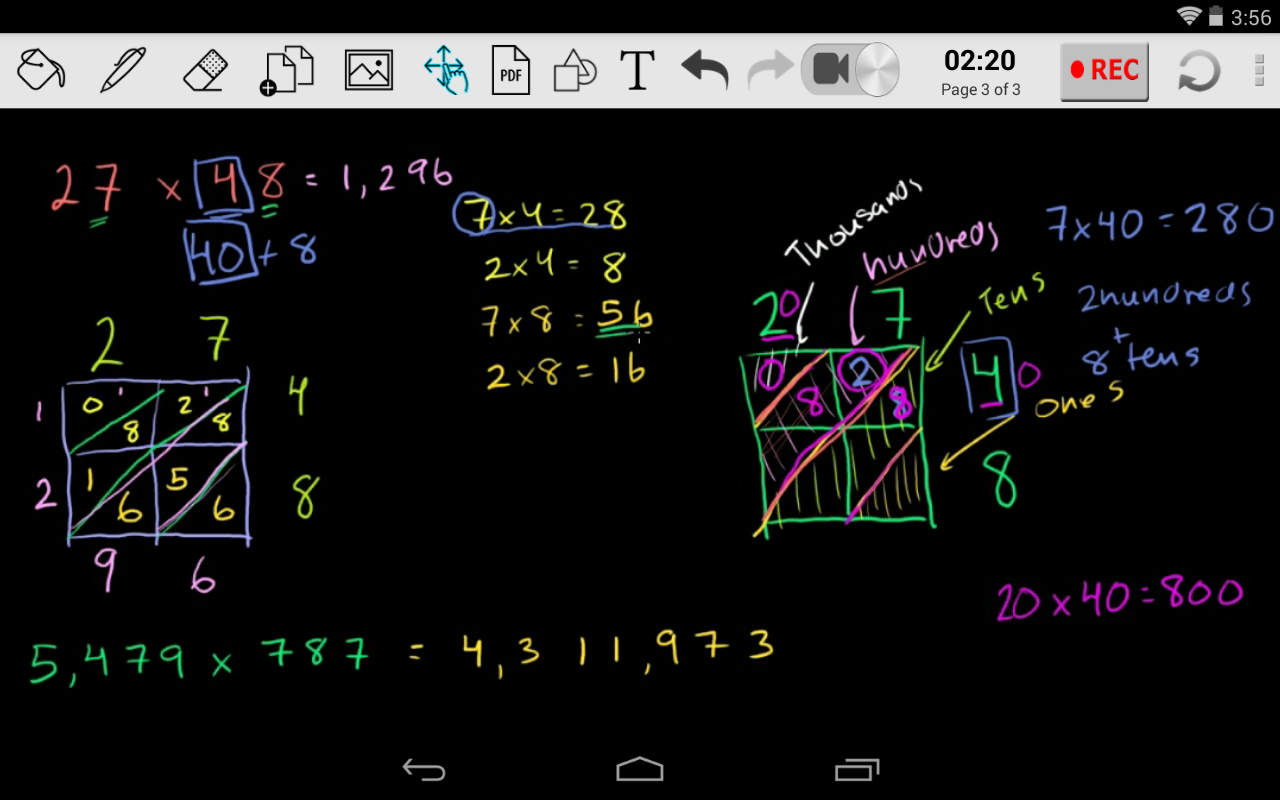 3:56
PDF
T
02:20
Page 3 of 3
REC
27 x 48 = 1,296
40 + 8
7 x 4 = 28
2 x 4 = 8
7 x 8 = 56
2 x 8 = 16
2 7
1 0 1 8 2 1 8 4
2 1 6 5 6 8
9 6
Thousands
hundreds
Tens
ones
20 7
0 8 2 8 40
8
7x40 = 280
2hundreds
+
8 tens
20 x 40 = 800
5,479 x 787 = 4,311,973